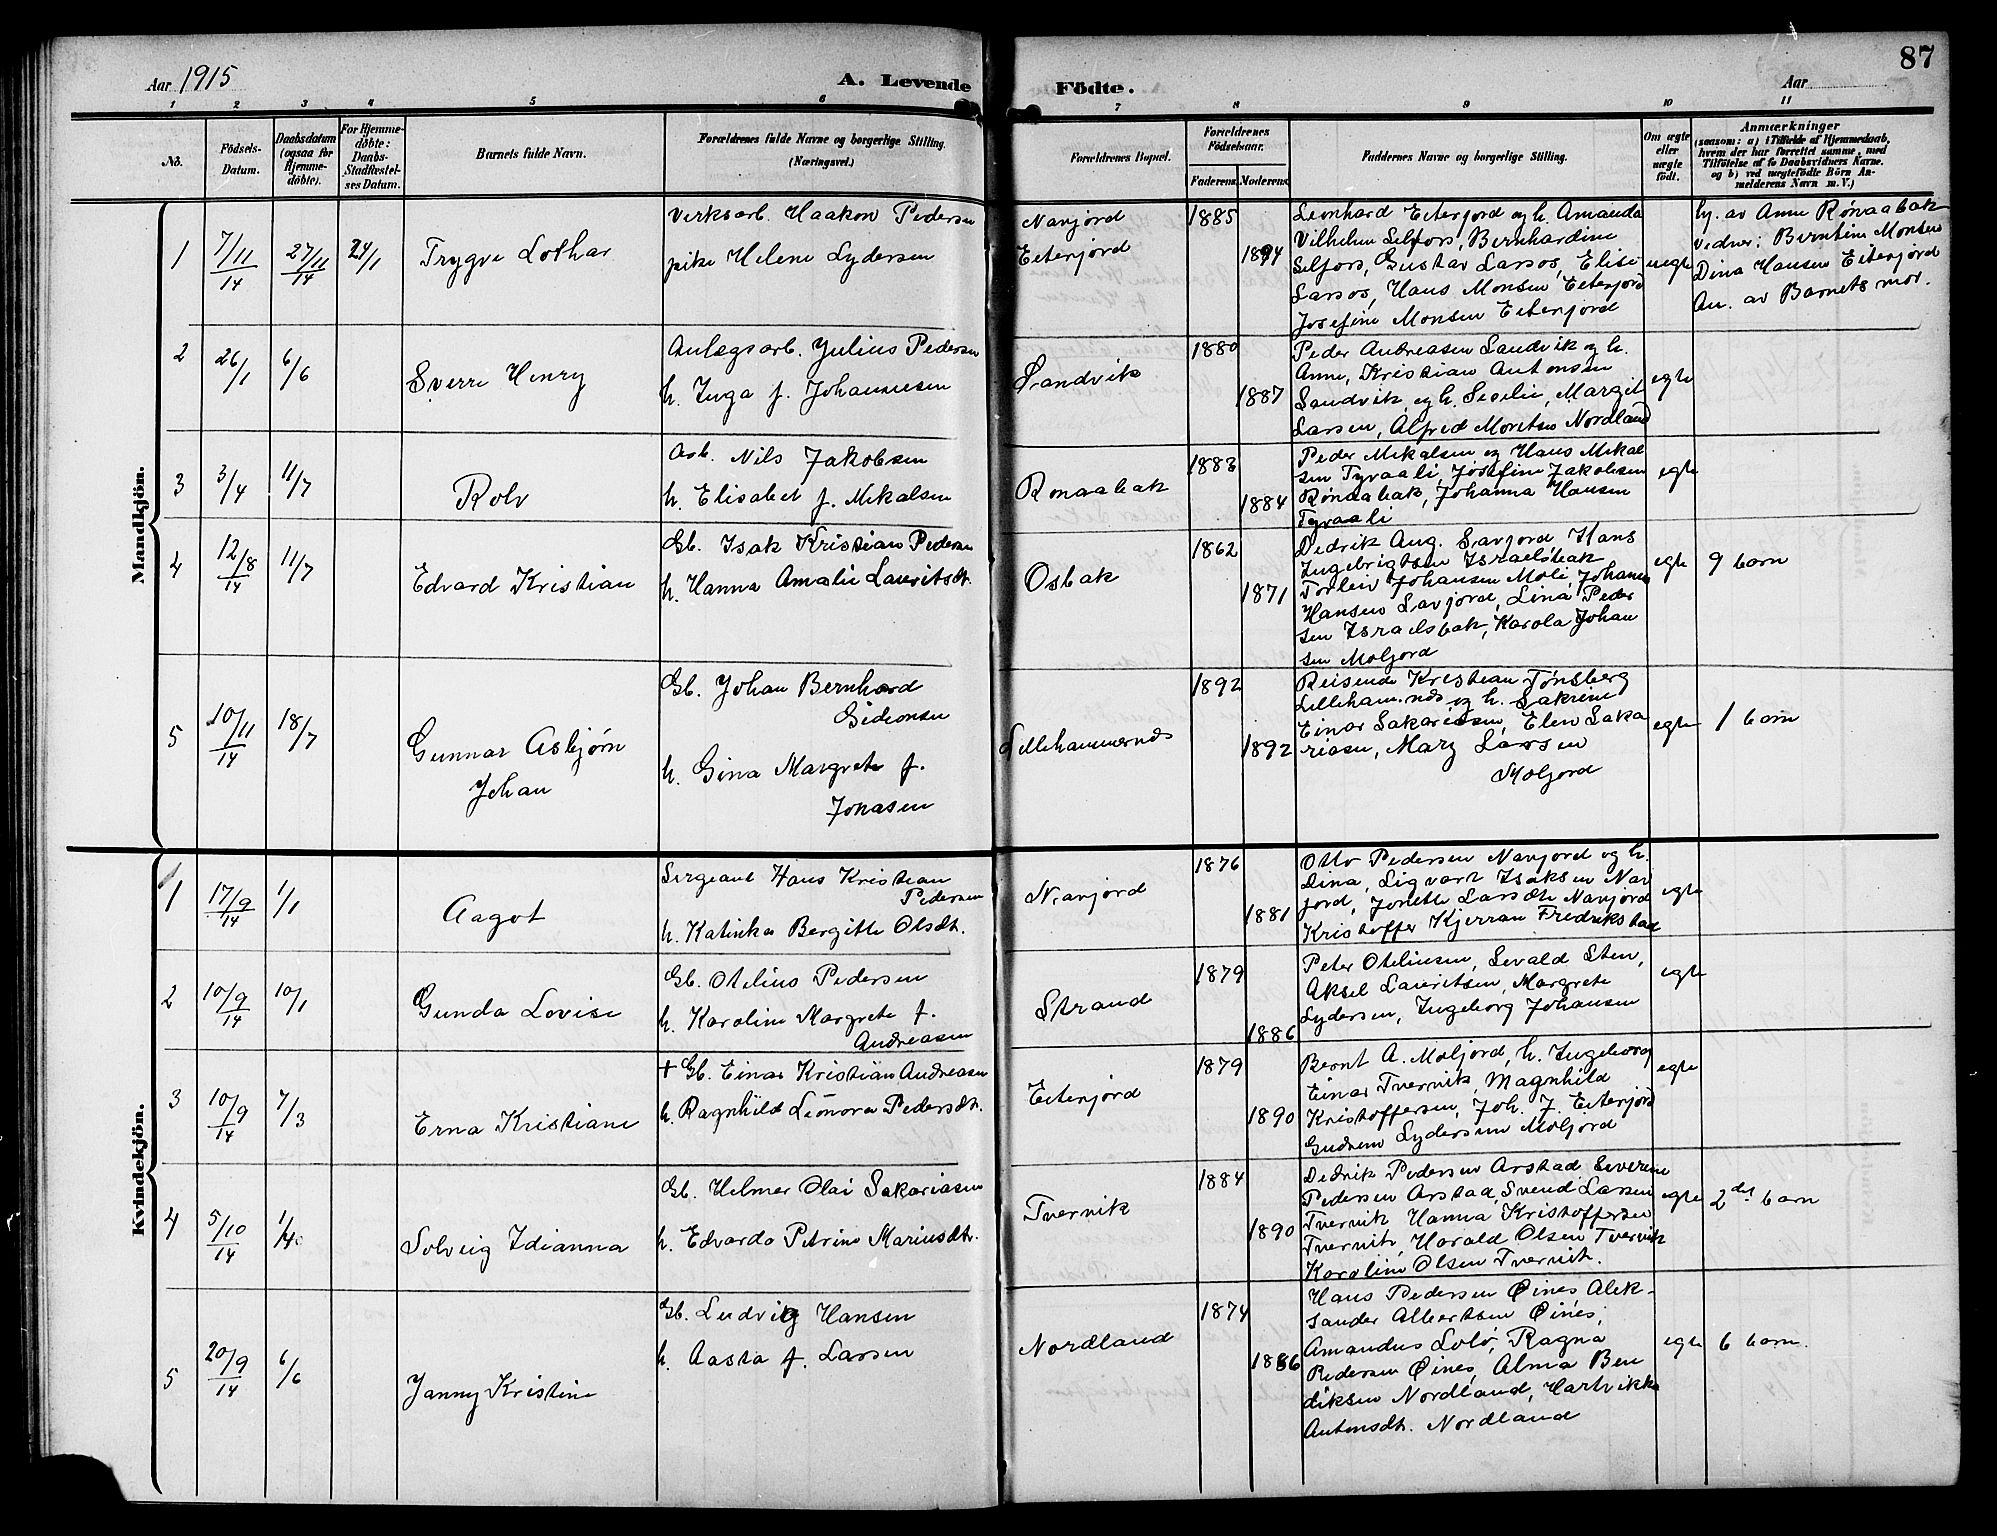 Aar 1915
A. Levende
Födte.
Aar
87
1 2 3 4 5 6 7 8 9 10 11
No.
Födsels-
Datum.
Daabsdatum
(ogsaa for
Hjemme-
döbte).
For Hjemme-
döbte:
Daabs-
Stadfæstel-
ses Datum.
Barnets fulde Navn.
Forældrenes fulde Navne og borgerlige Stilling.
(Næringsvei.)
Forældrenes Bopæl.
Forældrenes
Födselsaar.
Faderens. Moderens.
Faddernes Navne og borgerlige Stilling.
Om ægte
eller
uægte
födt.
Anmærkninger
(saasom: a) i Tilfælde af Hjemmedaab,
hvem der har forrettet samme, med
Tilföielse af to Daabsvidners Navne.
og b) ved uægtefödte Börn An-
melderens Navn m. V.)
Mandkjön.
1
7/11
14
27/11
14
24/1
Trygve Lothar
Verksarb. Haakon Pedersen
pike Helene Lydersen
Navjord
Eiterjord
1885
1894
Leonhard Eiterjord og h. Amanda
Vilhelm Selfors, Bernhardine
Selfors, Gustav Larsos, Elise
Larsos, Hans Monsen Eiterjord
Josefine Monsen Eiterjord
uegte
hj. av Anne Rønaabak
vidner: Berntine Monsen
Dina Hansen Eiterjord
An. av Barnets mor.
2
26/1
6/6
Sverre Henry
Anlegsarb. Julius Pedersen
h. Inga f. Johannesen
Sandvik
1880
1887
Peder Andreasen Sandvik og h.
Anne, Kristian Antonsen
Sandvik og h. Secilie, Margit
Larsen, Alfred Moritsen Nordland
egte
3
3/4
11/7
Rolv
Arb. Nils Jakobsen
h. Elisabet f. Mikalsen
Rønaabak
1883
1884
Peder Mikalsen og Hans Mikal
sen Tyvaali, Josefine Jakobsen
Rønaabak, Johanna Hansen
Tyvaali
egte
4
12/8
14
11/7
Edvard Kristian
Gb. Isak Kristian Pedersen
h. Hanna Amalie Lauritsdt.
Osbak
1862
1871
Didrik Aug. Savjord Hans
Ingebrigtsen Israelsbak
Torleiv Johansen Moli, Johanna
Hansen Savjord, Lina Peder
sen Israelsbak, Karola Johan
sen Moljord
egte
9 barn
5
10/11
14
18/7
Gunnar Asbjørn
Johan
Gb. Johan Bernhard
Gideonsen
h. Gina Margrete f.
Jonasen
Lillehammernes
1892
1892
Reisende Kristian Tønsberg
Lilleham.nes og h. Sakrine
Einar Sakariasen, Elen Saka
riasen, Mary Larsen
Moljord
egte
1 barn
Kvindekjön.
1
17/9
14
1/1
Aagot
Sergeant Hans Kristian
Pedersen
h. Katinka Bergitte Olsdt.
Navjord
1876
1881
Otto Pedersen Navjord og h.
Dina, Sigvart Isaksen Nav
jord, Jonette Larsdtr Navjord
Kristoffer Kjerran Fredrikstad
egte
2
10/9
14
10/1
Gunda Lovise
Gb. Otelius Pedersen
h. Karoline Margrete f.
Andreasen
Strand
1879
1886
Peter Oteliusen, Sevald Sten,
Aksel Lauritsen, Margrete
Lydersen, Ingeborg Johansen
egte
3
10/9
14
7/3
Erna Kristiane
+ Gb. Einar Kristian Andreasen
h. Ragnhild Leonora Pedersdt.
Eiterjord
1879
1890
Bernt A. Moljord, h. Ingeborg
Einar Tvervik, Magnhild
Kristoffersen, Joh. J. Eiterjord
Gudrun Lydersen Moljord
egte
4
5/10
14
1/4
Solveig Idianna
Gb. Helmer Olai Sakariasen
h. Edvarda Petrine Mariusdt.
Tvervik
1884
1890
Didrik Pedersen Arstad Severine
Pedersen Arstad, Svend Larsen
Tvervik, Hanna Kristoffersen
Tvervik, Harald Olsen Tvervik
Karoline Olsen Tvervik.
egte
2det barn
5
20/9
14
6/6
Janny Kristine
Gb. Ludvig Hansen
h. Aasta f. Larsen
Nordland
1874
1886
Hans Pedersen Øines Alek-
sander Albertsen Øines,
Amandus Solø, Ragna
Pedersen Øines, Alma Ben
diksen Nordland, Hartvikka
Antonsdt. Nordland
egte
6 barn.